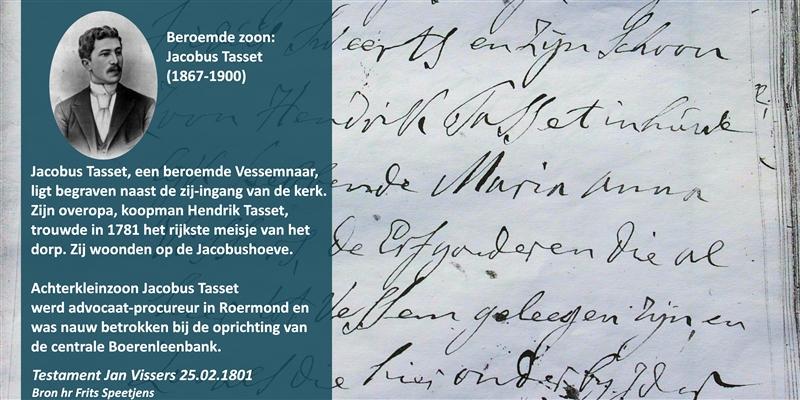 Beroemde zoon:
Jacobus Tasset
(1867-1900)
Jacobus Tasset, een beroemde Vessemnaar,
ligt begraven naast de zij-ingang van de kerk.
Zijn overopa, koopman Hendrik Tasset,
trouwde in 1781 het rijkste meisje van het
dorp. Zij woonden op de Jacobushoeve.
Achterkleinzoon Jacobus Tasset
werd advocaat-procureur in Roermond en
was nauw betrokken bij de oprichting van
de centrale Boerenleenbank.
Testament Jan Vissers 25.02.1801
Bron hr Frits Speetjens
en Zijn Schoon
Hendrik Tasset in huwe
Maria anna
de Erfgoederen die al
geleegen Zijn en
die hier onder